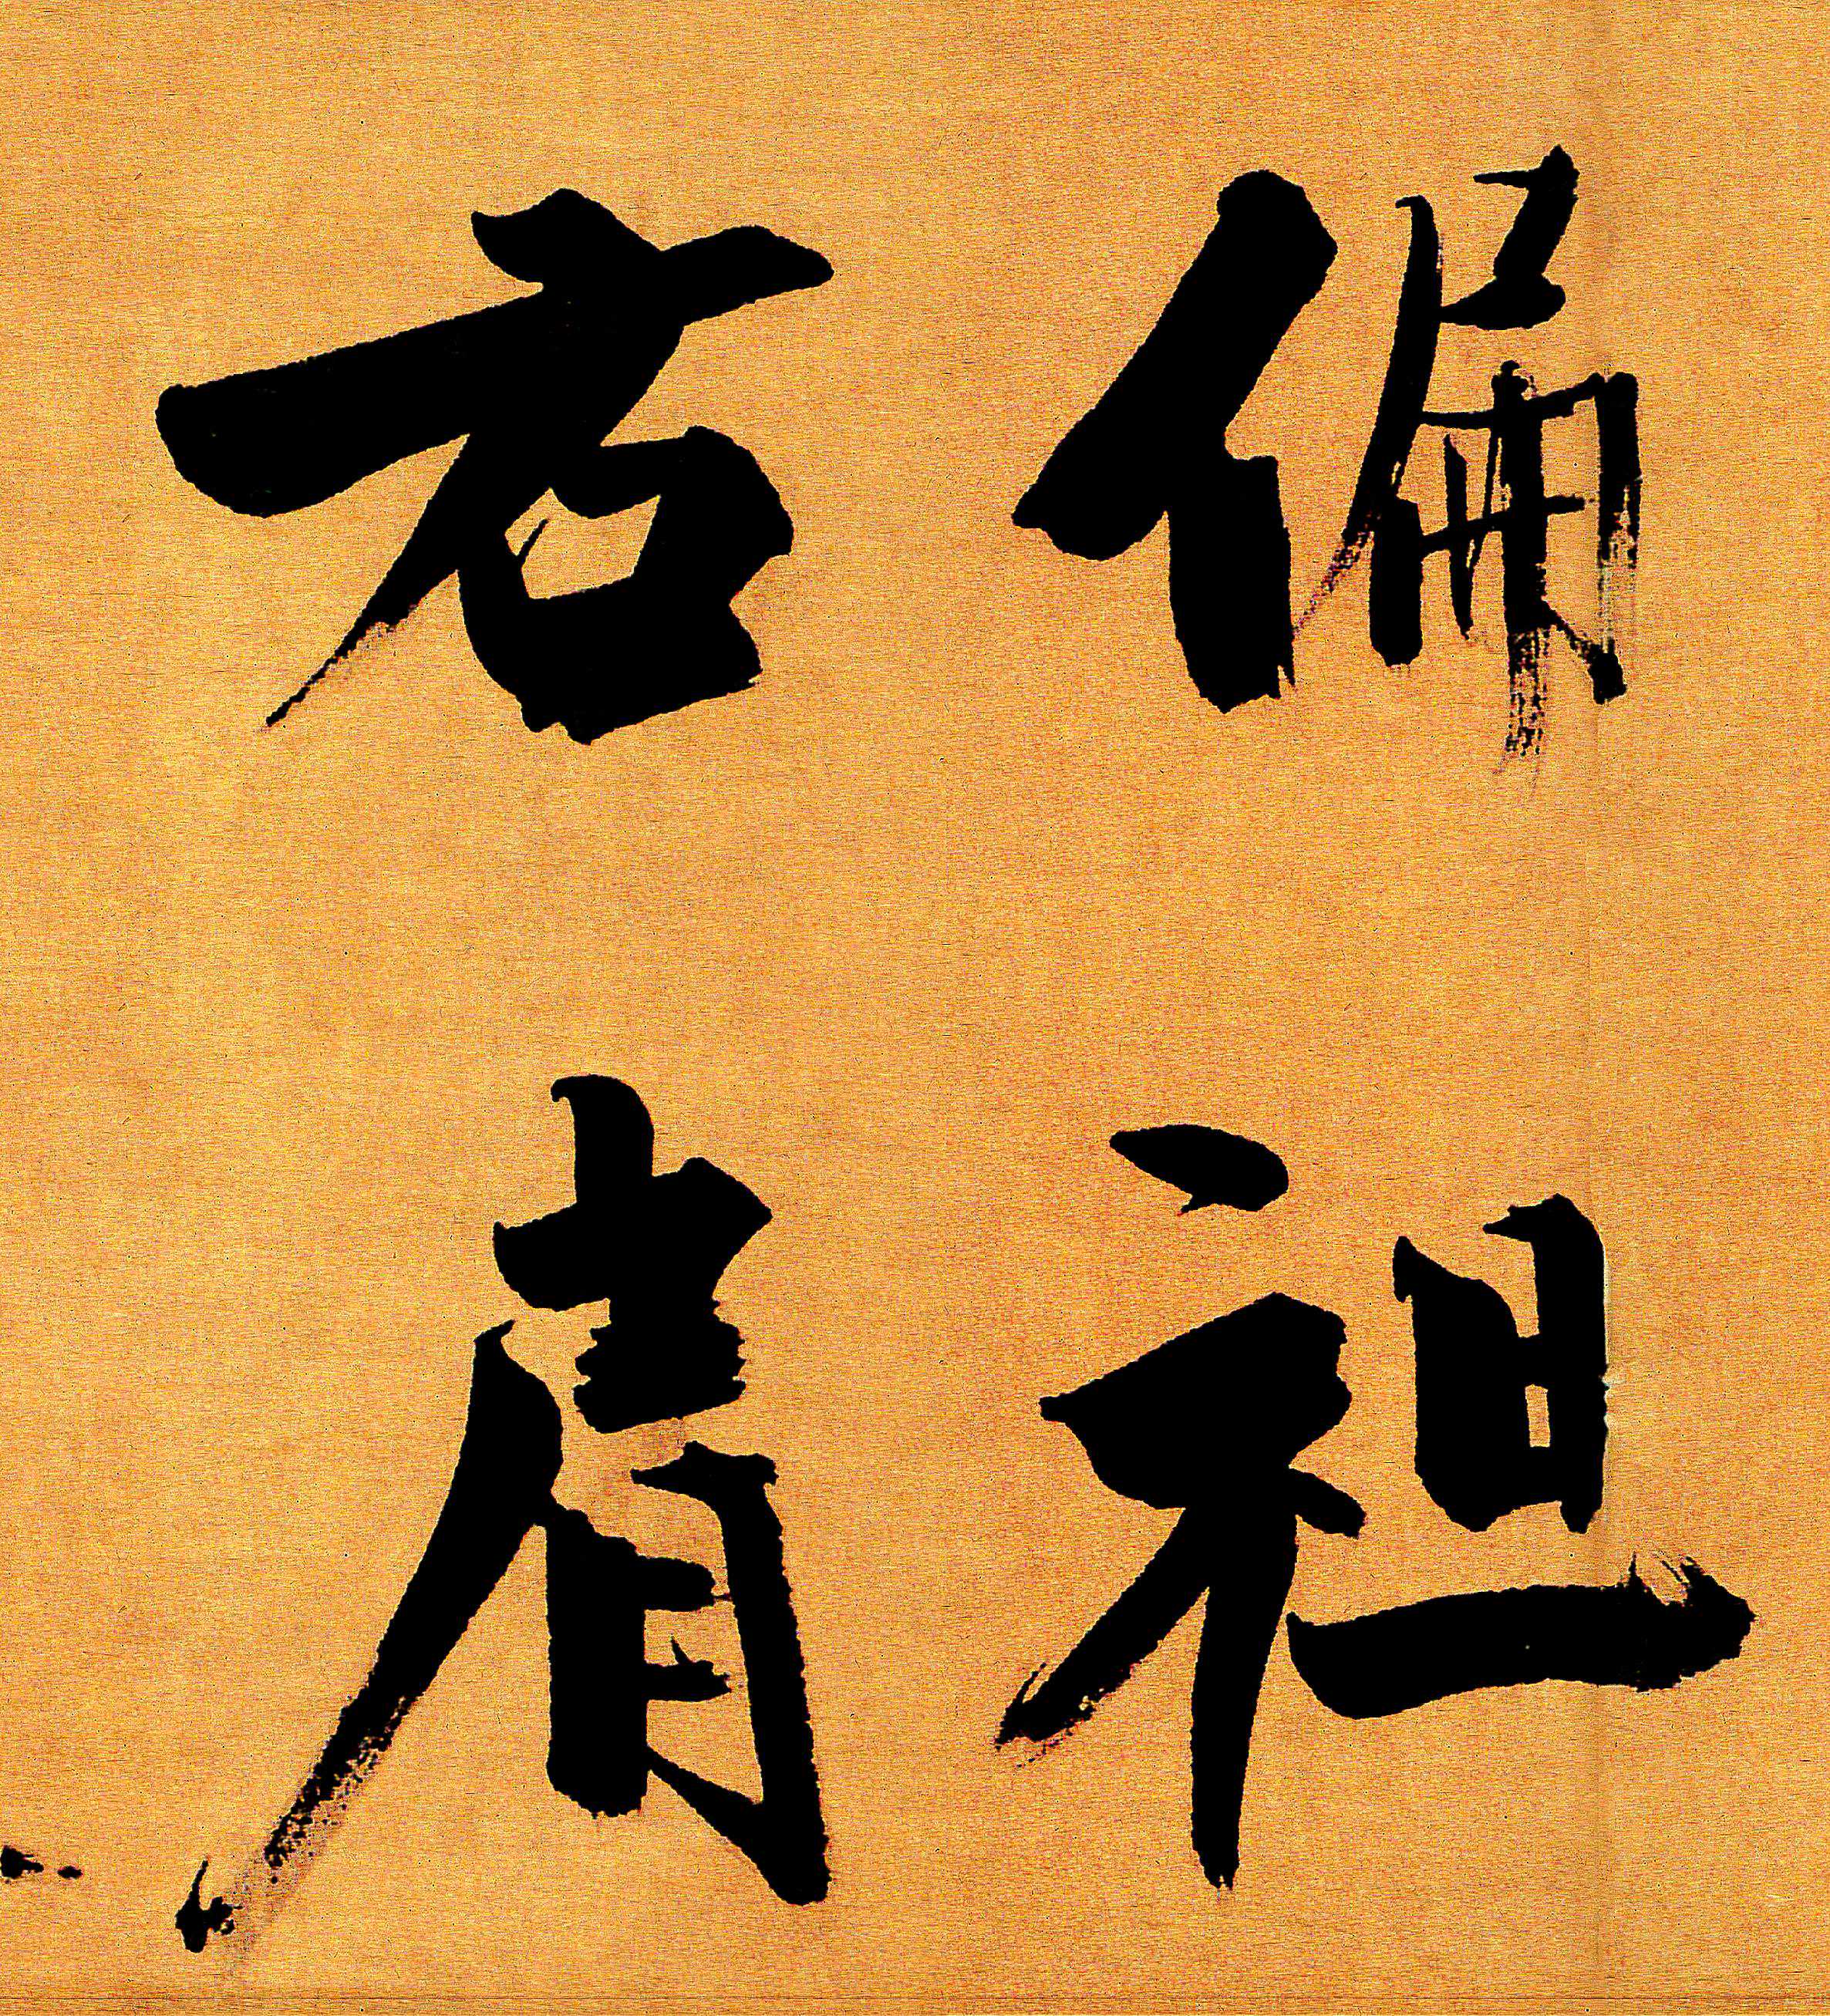 偏袒
右肩